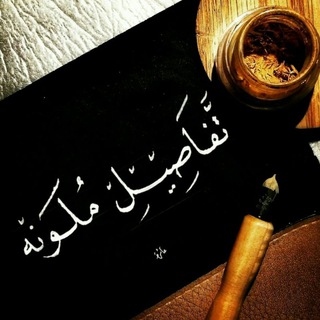 تَفَاصِيلِ مُلَوَنَه